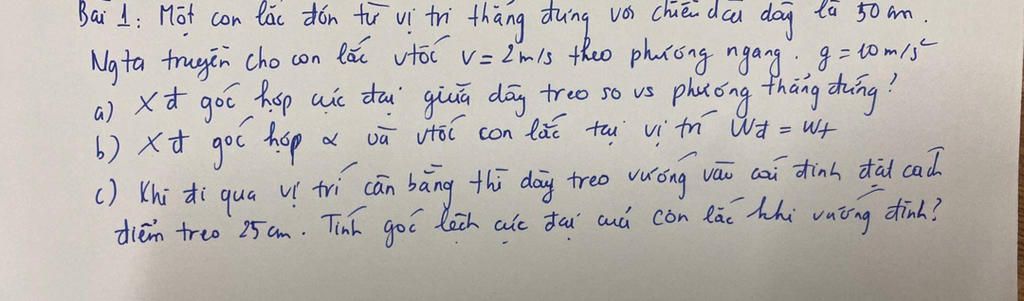 Bài 1: Một con lắc đơn từ vị trí thẳng đứng với chiều dài dây là 50 cm.
Ngta truyền cho con lắc vtốc v = 2m/s theo phương ngang. g = 10 m/s²
a) Xđ góc hợp cực đại giữa dây treo so vs phương thẳng đứng?
b) Xđ góc hợp α và vtốc con lắc tại vị trí Wđ = Wt
c) Khi đi qua vị trí cân bằng thì dây treo vướng vào cái đinh đặt cách
điểm treo 25 cm. Tính góc lệch cực đại của con lắc khi vướng đinh?